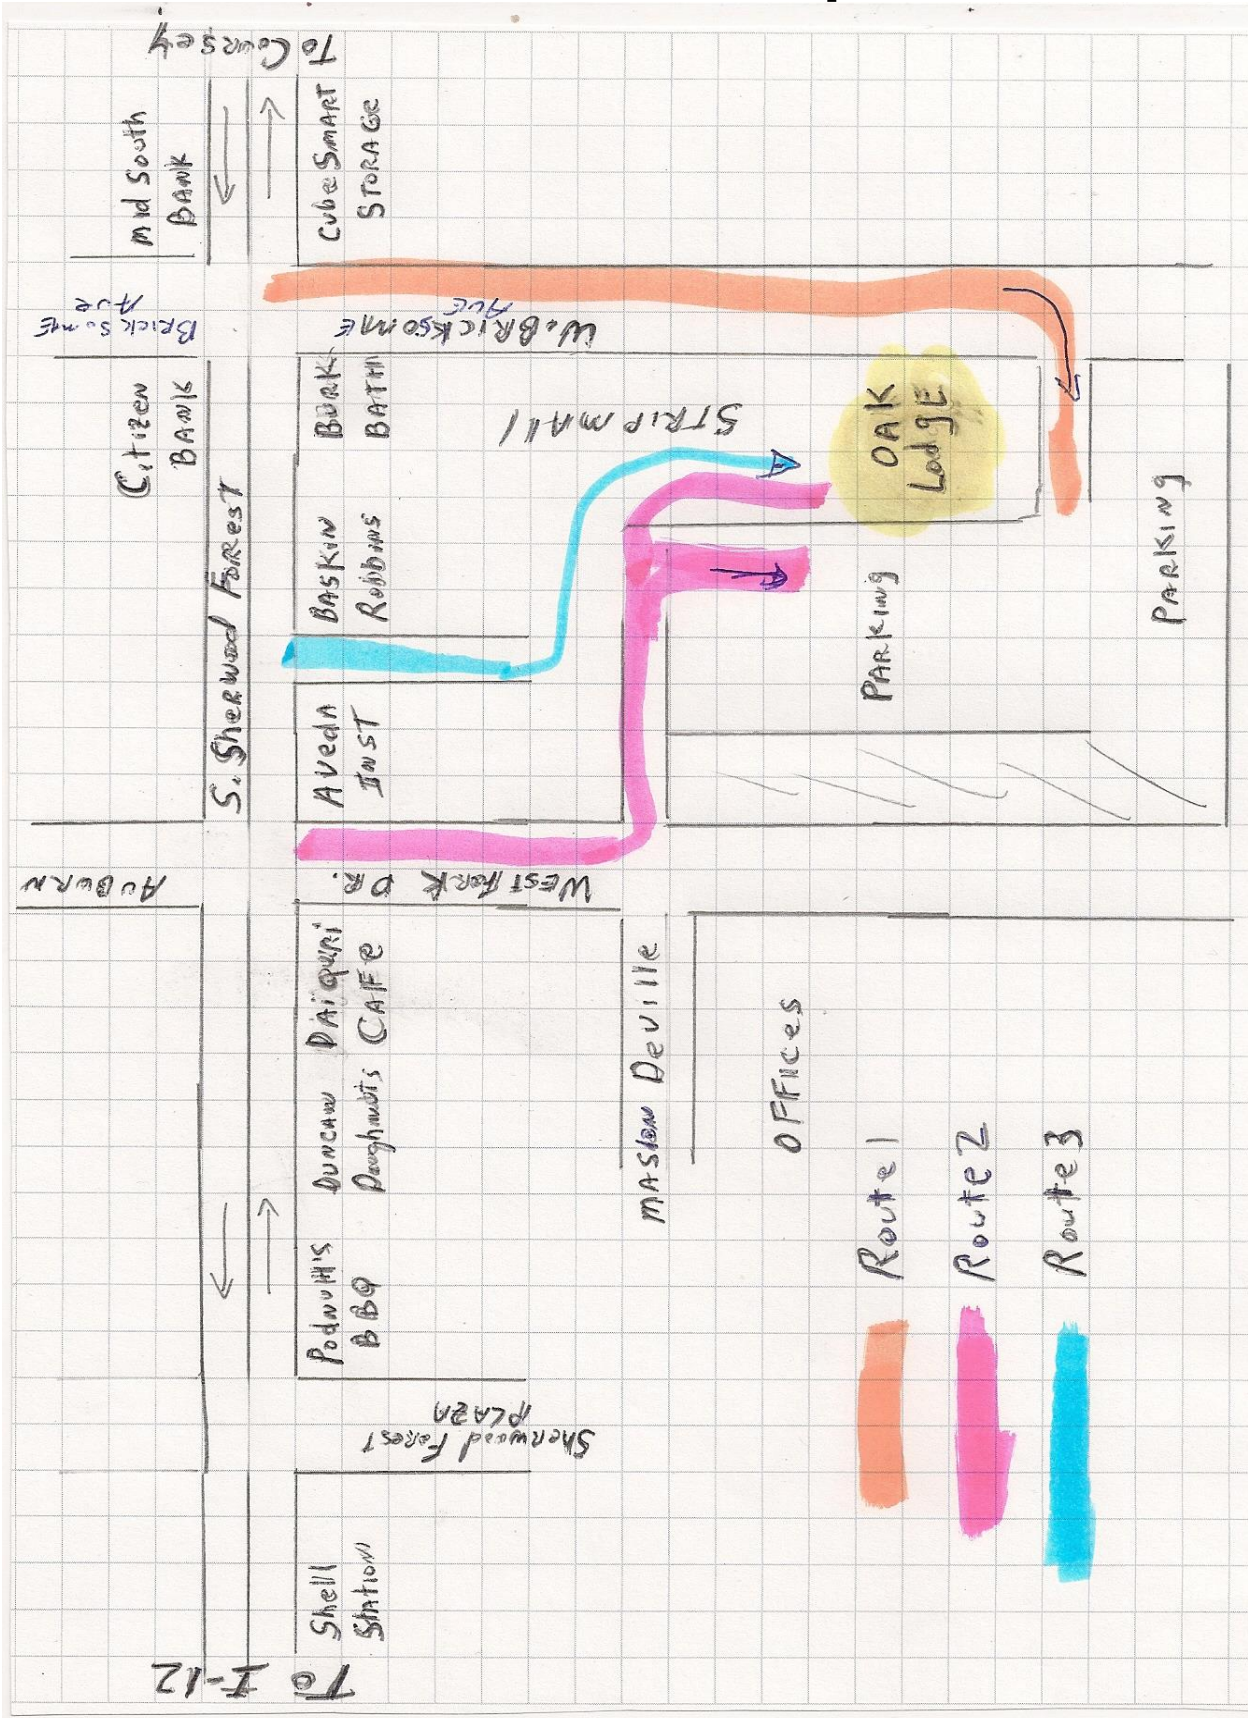 To Coursey
Mid South
BANK
CubeSMART
STORAGE
BRICKSOME
AVE
W. BRICKSOME
AVE
Citizen
BANK
S. SHERWOOD FOREST
BURK
BATH
STRIP MALL
OAK
LodgE
BASKIN
RobbiNS
PARKING
PARKING
AVedA
INST
AUBURN
WESTFORK DR.
DAIQUIRI
CAFE
DUNCAN
Doughnuts
MASION DeVille
OFFICES
Podnuh's
BBQ
Sherwood FOREST
PLAZA
Shell
Station
To I-12
Route 1
Route 2
Route 3